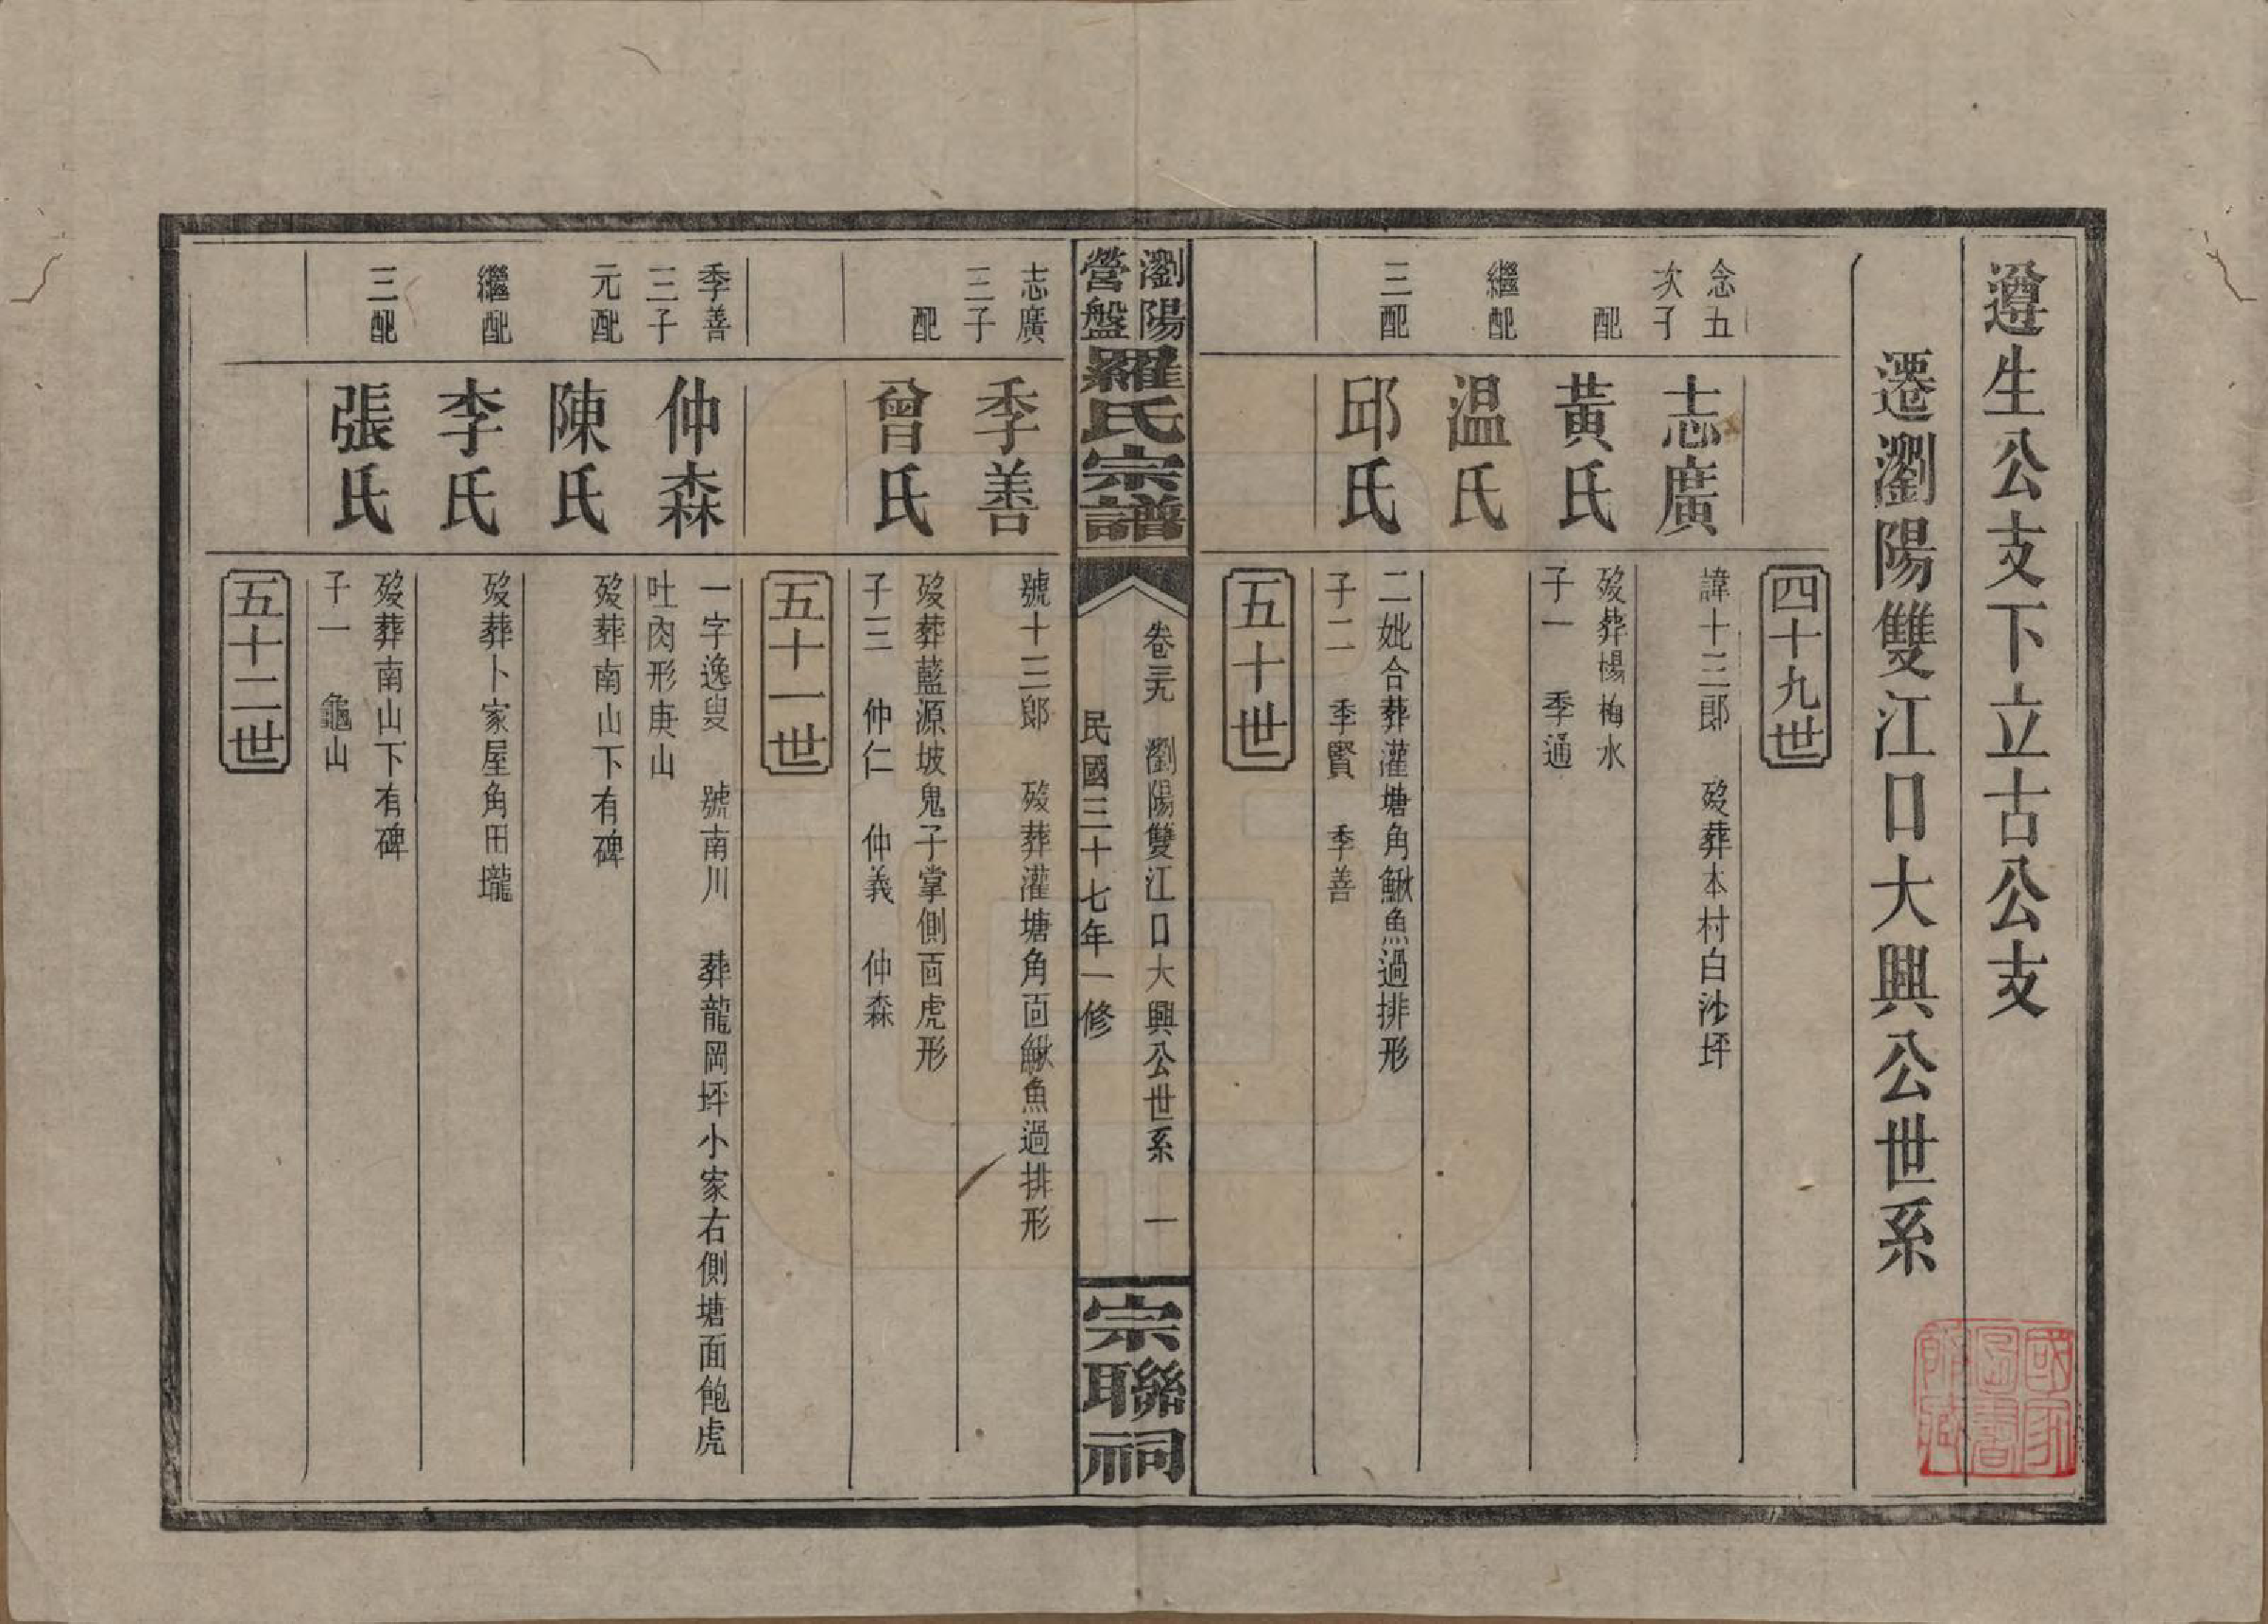 遵生公支下立古公支
遷瀏陽雙江口大興公世系
四十九世
念五
次子
志廣
諱十三郎 歿葬本村白沙坪
配
黃氏
歿葬楊梅水
子一 季通
繼配
温氏
三配
邱氏
二妣合葬灌塘角鰍魚過排形
子二 季賢 季善
五十世
瀏陽
營盤
羅氏宗譜
卷三九 瀏陽雙江口大興公世系 一
民國三十七年一修
宗聯祠
志廣
三子
季善
號十三郎 歿葬灌塘角面鰍魚過排形
配
曾氏
歿葬藍源坡鬼子掌側面虎形
子三 仲仁 仲義 仲森
五十一世
季善
三子
仲森
一字逸叟 號南川 葬龍岡坪小家右側塘面飽虎
吐肉形庚山
元配
陳氏
歿葬南山下有碑
繼配
李氏
歿葬卜家屋角田壠
三配
張氏
歿葬南山下有碑
子一 龜山
五十二世
國家
圖書
館藏